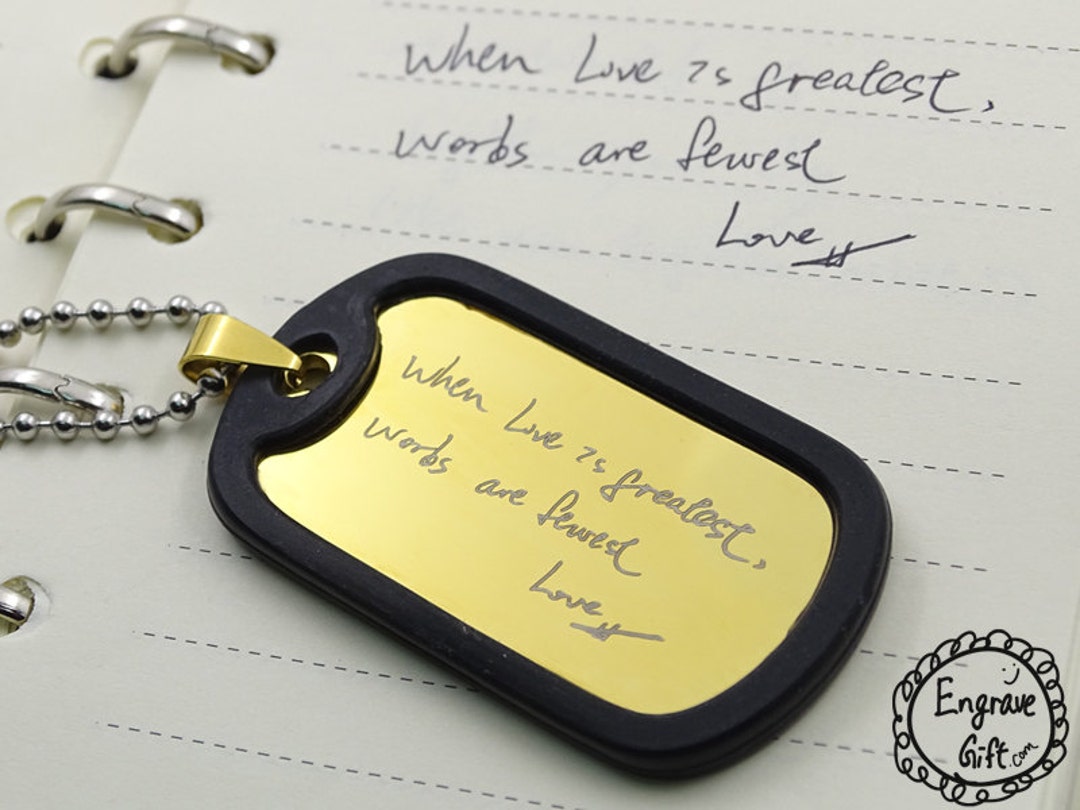 When Love is greatest,
words are fewest
Love
When Love is greatest,
words are fewest
Love
Engrave
Gift.com